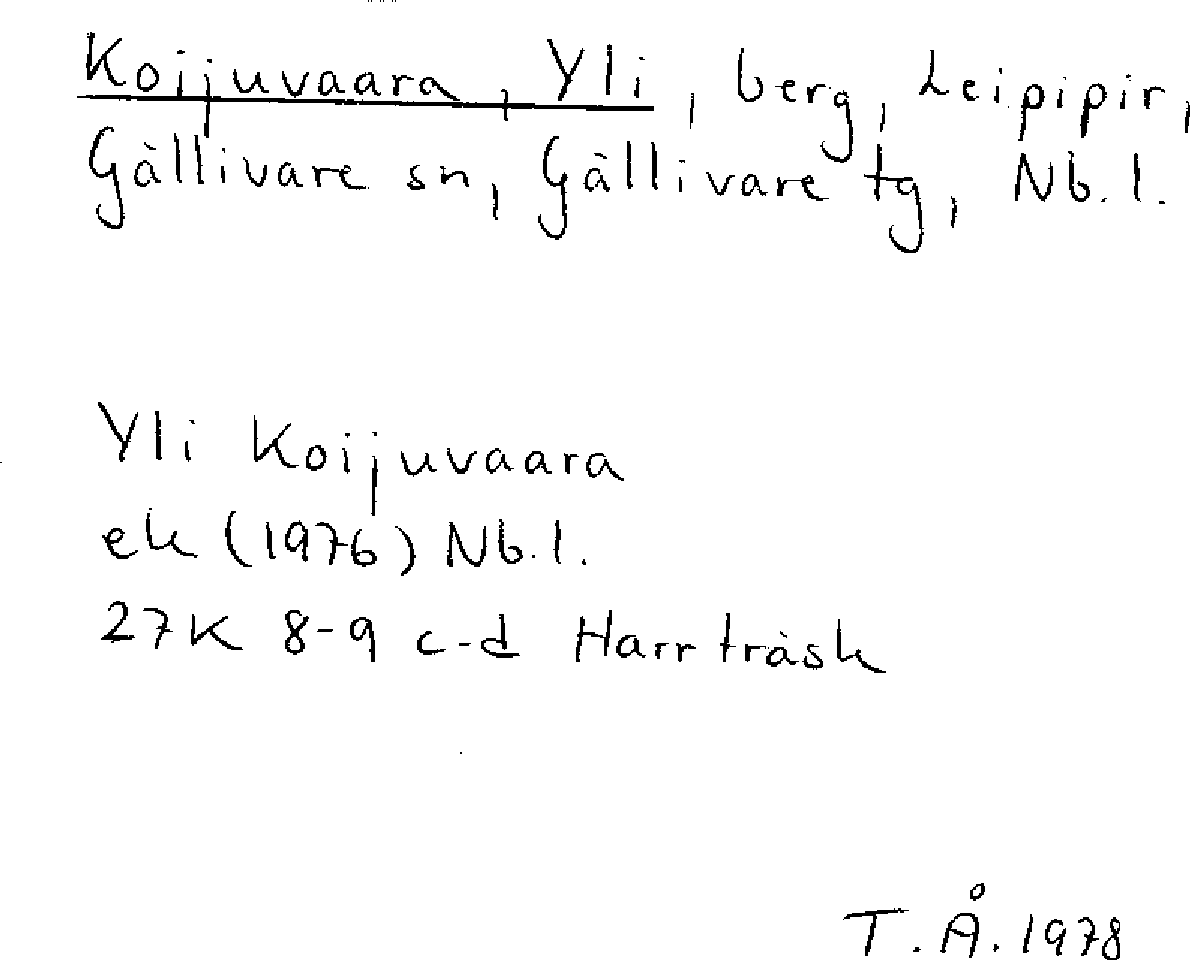 Koijuvaara, Yli, berg, Leipipir,
Gällivare sn, Gällivare tg, Nb.l.
Yli Koijuvaara
ek (1976) Nb.l.
27K 8-9 c-d Harrträsk
T.Å. 1978